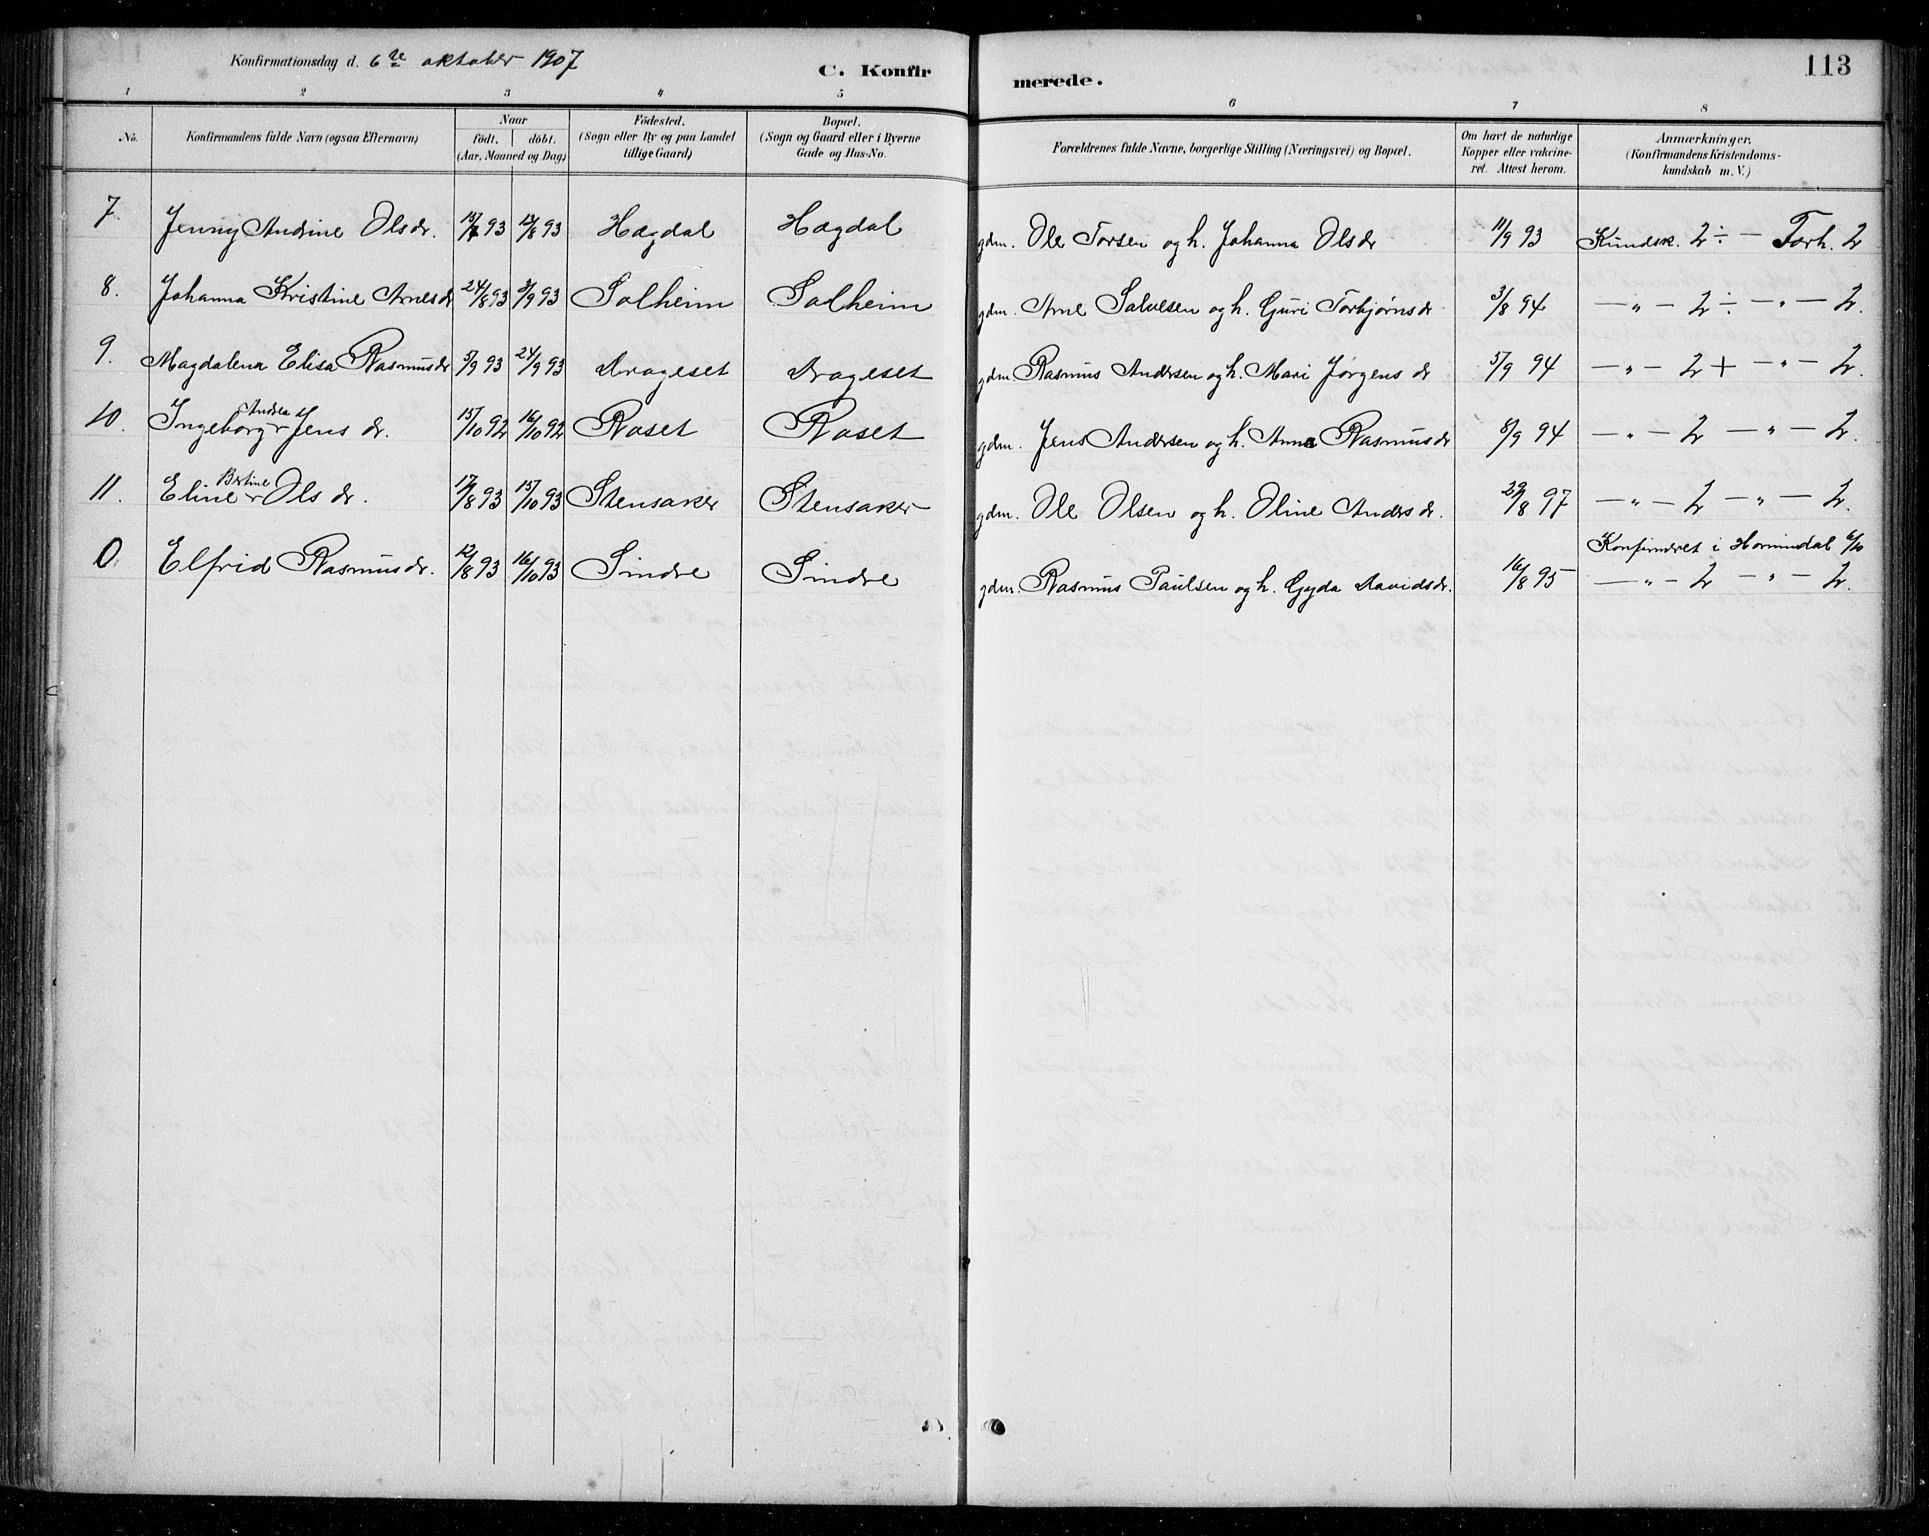 Konfirmationsdag d. 6te oktober 1907
C. Konfirmerede.
113
1 2 3 4 5 6 7 8
No. Konfirmandens fulde Navn (ogsaa Efternavn) Naar født. døbt. (Aar, Maaned og Dag) Födested. (Sogn eller By og paa Landet tillige Gaard) Bopæl. (Sogn og Gaard eller i Byerne Gade og Hus-No. Forældrenes fulde Navne, borgerlige Stilling (Næringsvei) og Bopæl. Om havt de naturlige Kopper eller vakcineret. Attest herom. Anmærkninger. (Konfirmandens Kristendomskundskab m.V.)
7. Jenny Andrine Olsdr. 93 12/8 93 Hægdal Hægdal gdm. Ole Torsen og h. Johanna Olsdr 11/9 93 Kundsk. 2 ÷ — Forh. 2
8. Johanna Kristine Arnesdr 24/8 93 3/9 93 Solheim Solheim gdm. Arne Salvesen og h. Guri Torbjørnsdr 3/8 94 — „ — 2 ÷ — „ — 2.
9. Magdalena Elisa Rasmusdr 5/9 93 24/9 93 Drageset Drageset gdm. Rasmus Andersen og h. Mari Jørgensdr 5/9 94 — „ — 2 + — „ — 2.
10. Ingeborg Andrea Jensdr. 15/10 92 16/10 92 Raset Raset gdm. Jens Andersen og h. Anna Rasmusdr 8/9 94 — „ — 2 — „ — 2.
11. Eline Bertine Olsdr. 17/8 93 15/10 93 Stensaker Stensaker gdm. Ole Olsen og h. Oline Andersdr. 29/8 97 — „ — 2 — „ — 2.
0. Elfrid Rasmusdr. 12/8 93 16/10 93 Sindre Sindre gdm. Rasmus Paulsen og h. Gyda Davidsdr. 16/8 95 Konfirmeret i Hornindal 6/10
— „ — 2 — „ — 2.